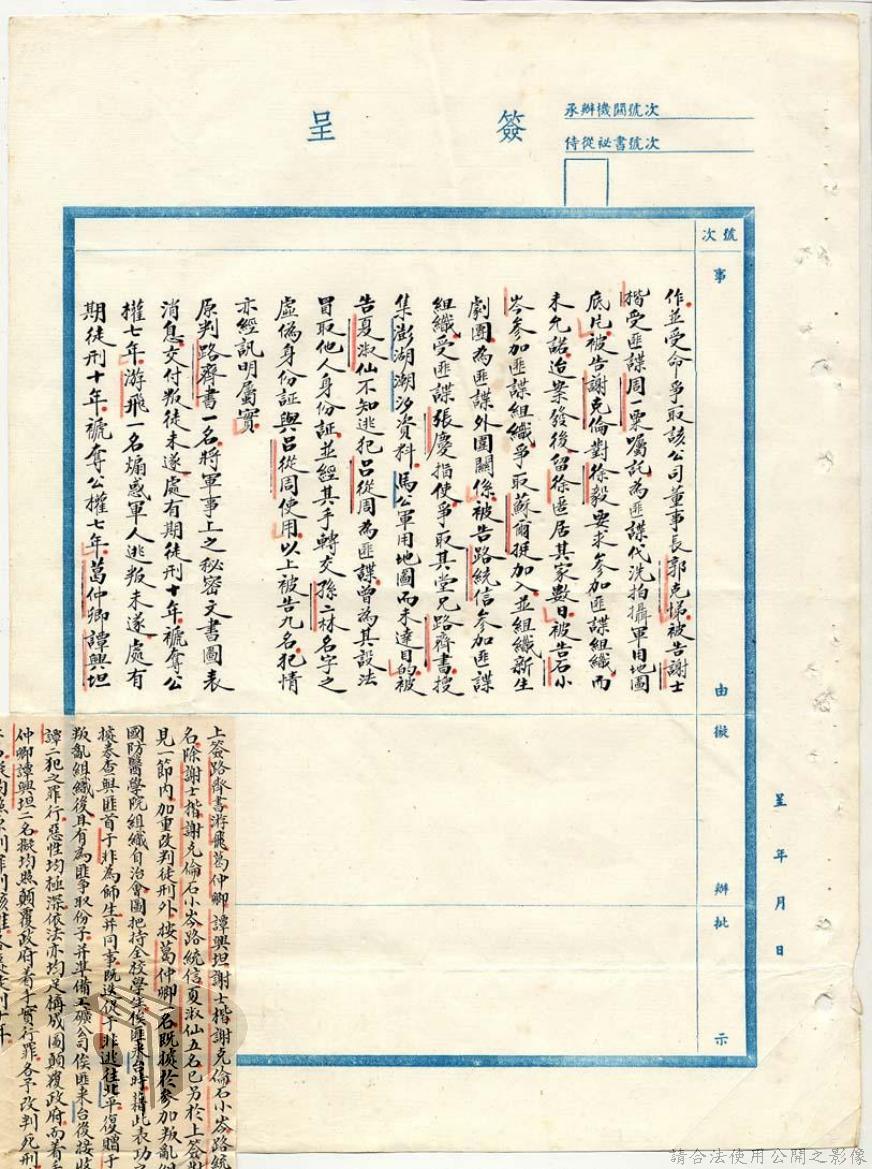 簽呈
承辦機關號次
侍從祕書號次
號次
事由
擬辦
批示
呈 年 月 日
作並受命爭取該公司董事長郭克悌被告謝士
楷受匪諜周一粟囑託為匪諜代洗拍攝軍用地圖
底片被告謝克倫對徐毅要求參加匪諜組織而
未允諾迨案發後留徐匿居其家數日被告石小
岑參加匪諜組織爭取蘇爾挺加入並組織新生
劇團為匪諜外圍關係被告路統信參加匪諜
組織受匪諜張慶指使爭取其堂兄路齊書搜
集澎湖潮汐資料馬公軍用地圖而未達目的被
告夏淑仙不知逃犯呂從周為匪諜曾為其設法
冒取他人身份証並經其手轉交孫二林名字之
虛偽身份証與呂從周使用以上被告九名犯情
亦經訊明屬實
原判路齊書一名將軍事上之秘密文書圖表
消息交付叛徒未遂處有期徒刑十年褫奪公
權七年游飛一名煽惑軍人逃叛未遂處有
期徒刑十年褫奪公權七年葛仲卿譚興坦
上簽路齊書游飛葛仲卿譚興坦謝士楷謝克倫石小岑路統
名除謝士楷謝克倫石小岑路統信夏淑仙五名已另於上簽
見一節內加重改判徒刑外按葛仲卿一名既據於參加叛亂組
國防醫學院組織自治會圖把持全校學生俟匪來台時藉此表功
據奉查與匪首于非為師生并同事既送從于非逃往北平復贈于
叛亂組織後且有為匪爭取份子并準備工礦公司俟匪來台後接收
譚二犯之罪行惡性均極深依法亦均足構成圖顛覆政府而着手
仲卿譚興坦二名擬均照顛覆政府着手實行罪各予改判死刑